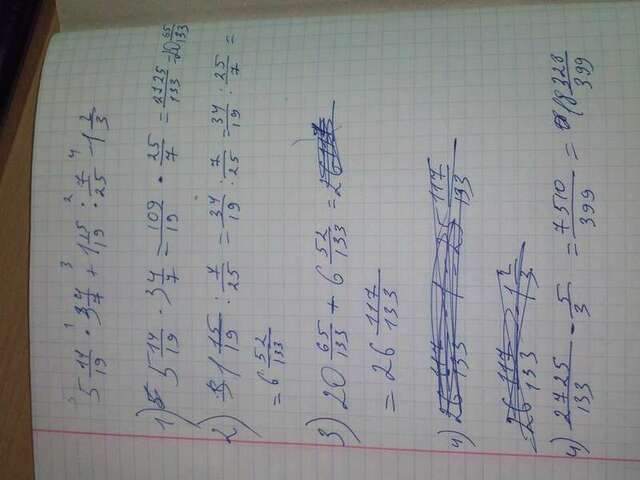 5 14/19 · 3 4/7 + 1 15/19 : 7/25 - 1 2/3
1) 5 14/19 · 3 4/7 = 109/19 · 25/7 = 2725/133 = 20 65/133
2) 1 15/19 : 7/25 = 34/19 : 7/25 = 34/19 · 25/7 =
= 6 52/133
3) 20 65/133 + 6 52/133 =
= 26 117/133
4)
4) 2725/133 · 5/3 = 7510/399 = 18 328/399